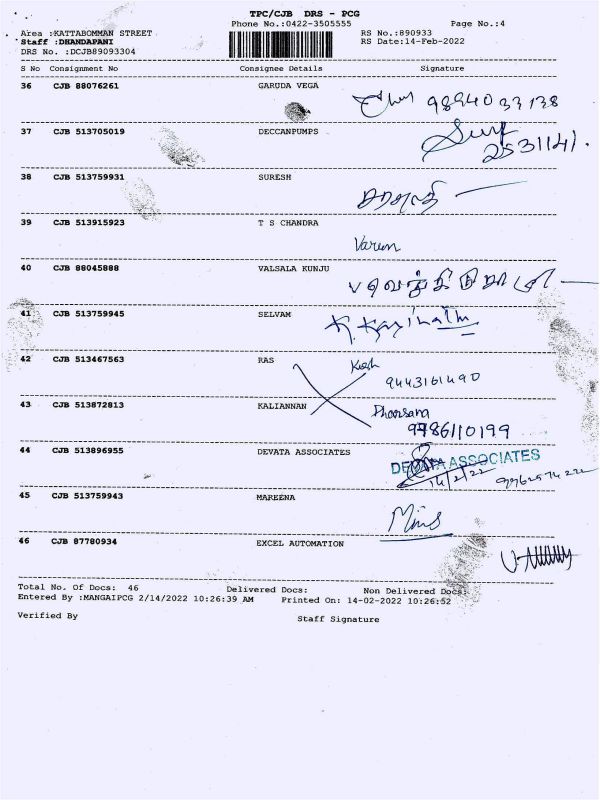 TPC/CJB DRS - PCG
Phone No.:0422-3505555
Page No.:4
Area :KATTABOMMAN STREET
RS No.:890933
Staff :DHANDAPANI
RS Date:14-Feb-2022
DRS No. :DCJB89093304
S No Consignment No Consignee Details Signature
36 CJB 88076261 GARUDA VEGA
9894033138
37 CJB 513705019 DECCANPUMPS
2531141.
38 CJB 513759931 SURESH
39 CJB 513915923 T S CHANDRA
Varun
40 CJB 88045888 VALSALA KUNJU
41 CJB 513759945 SELVAM
42 CJB 513467563 RAS
9443161490
43 CJB 513872813 KALIANNAN
9786110199
44 CJB 513896955 DEVATA ASSOCIATES
DEVATA ASSOCIATES
14/2/22
45 CJB 513759943 MAREENA
46 CJB 87780934 EXCEL AUTOMATION
Total No. Of Docs: 46 Delivered Docs: Non Delivered Docs:
Entered By :MANGAIPCG 2/14/2022 10:26:39 AM Printed On: 14-02-2022 10:26:52
Verified By Staff Signature